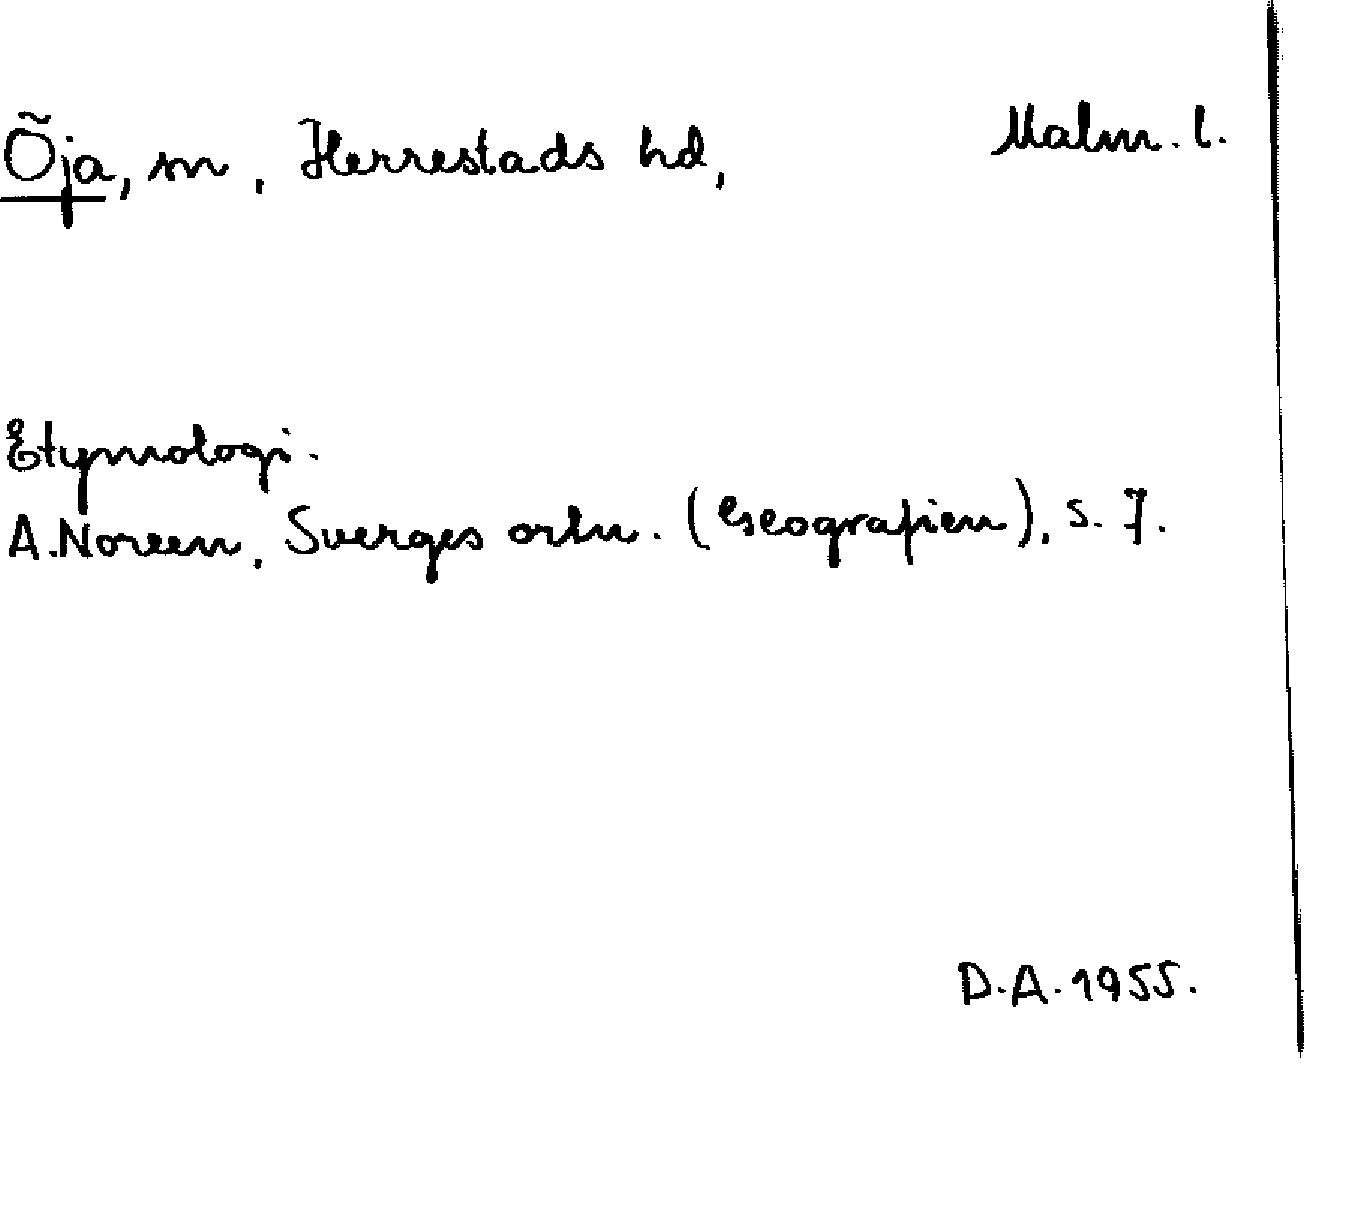 Öja, sn, Herrestads hd, Malm. l.
Etymologi.
A. Noreen, Sverges ortn. (Geografien), s. 7.
D.A. 1955.